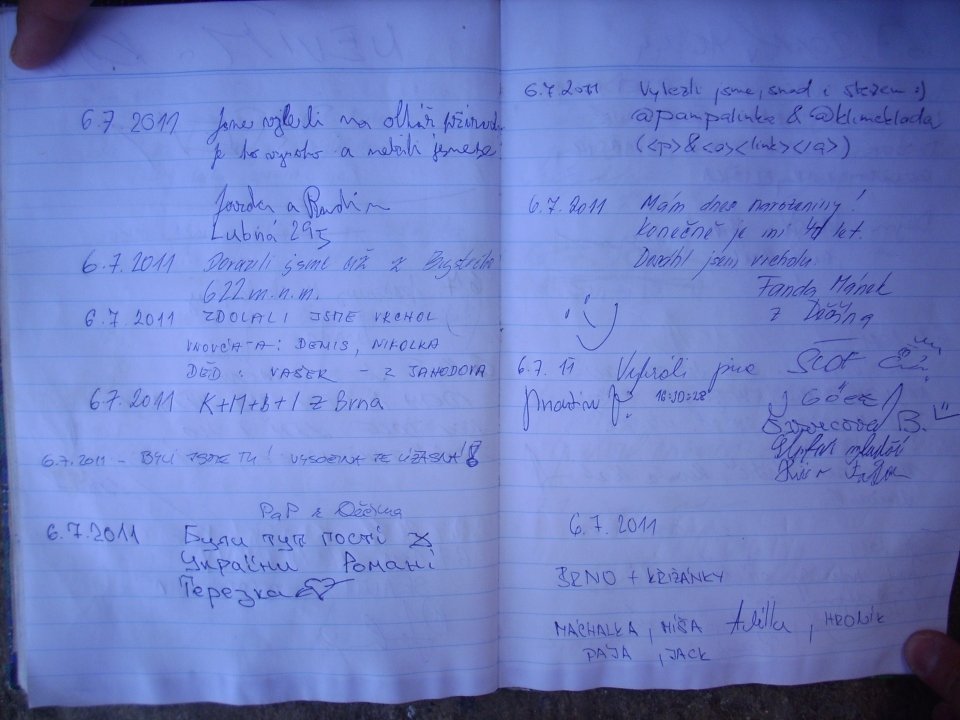 6.7.2011 Jsme vylezli na oltář
je to vysoko a
Jarda a Radim
Lubná 295
6.7.2011 Dorazili jsme až z Bystrice
622 m.n.m.
6.7.2011 ZDOLALI JSME VRCHOL
VNOUČATA: DENIS, NIKOLKA
DĚD: VAŠEK - Z JAHODOVA
6.7.2011 K+M+b+l z Brna
6.7.2011 - BYLI JSME TU! VYSOČINA JE ÚŽASNÁ!
PaP z Děčína
6.7.2011 Були тут гості з
України Романі
Терезка
6.7.2011 Vylezli jsme, snad i slezem :)
@pampalinka & @klimeklada
(<p>&<a><link></a>)
6.7.2011 Mám dnes narozeniny!
Konečně je mi let.
Dosáhl jsem vrcholu.
Fanda Mánek
z Děčína
6.7.11 Vyhráli jsme
16:30:28
Švorcová B.
mladší
6.7.2011
BRNO + KŘIŽÁNKY
MÁCHALKA, MÍŠA , HRONÍK
PÁJA, JACK